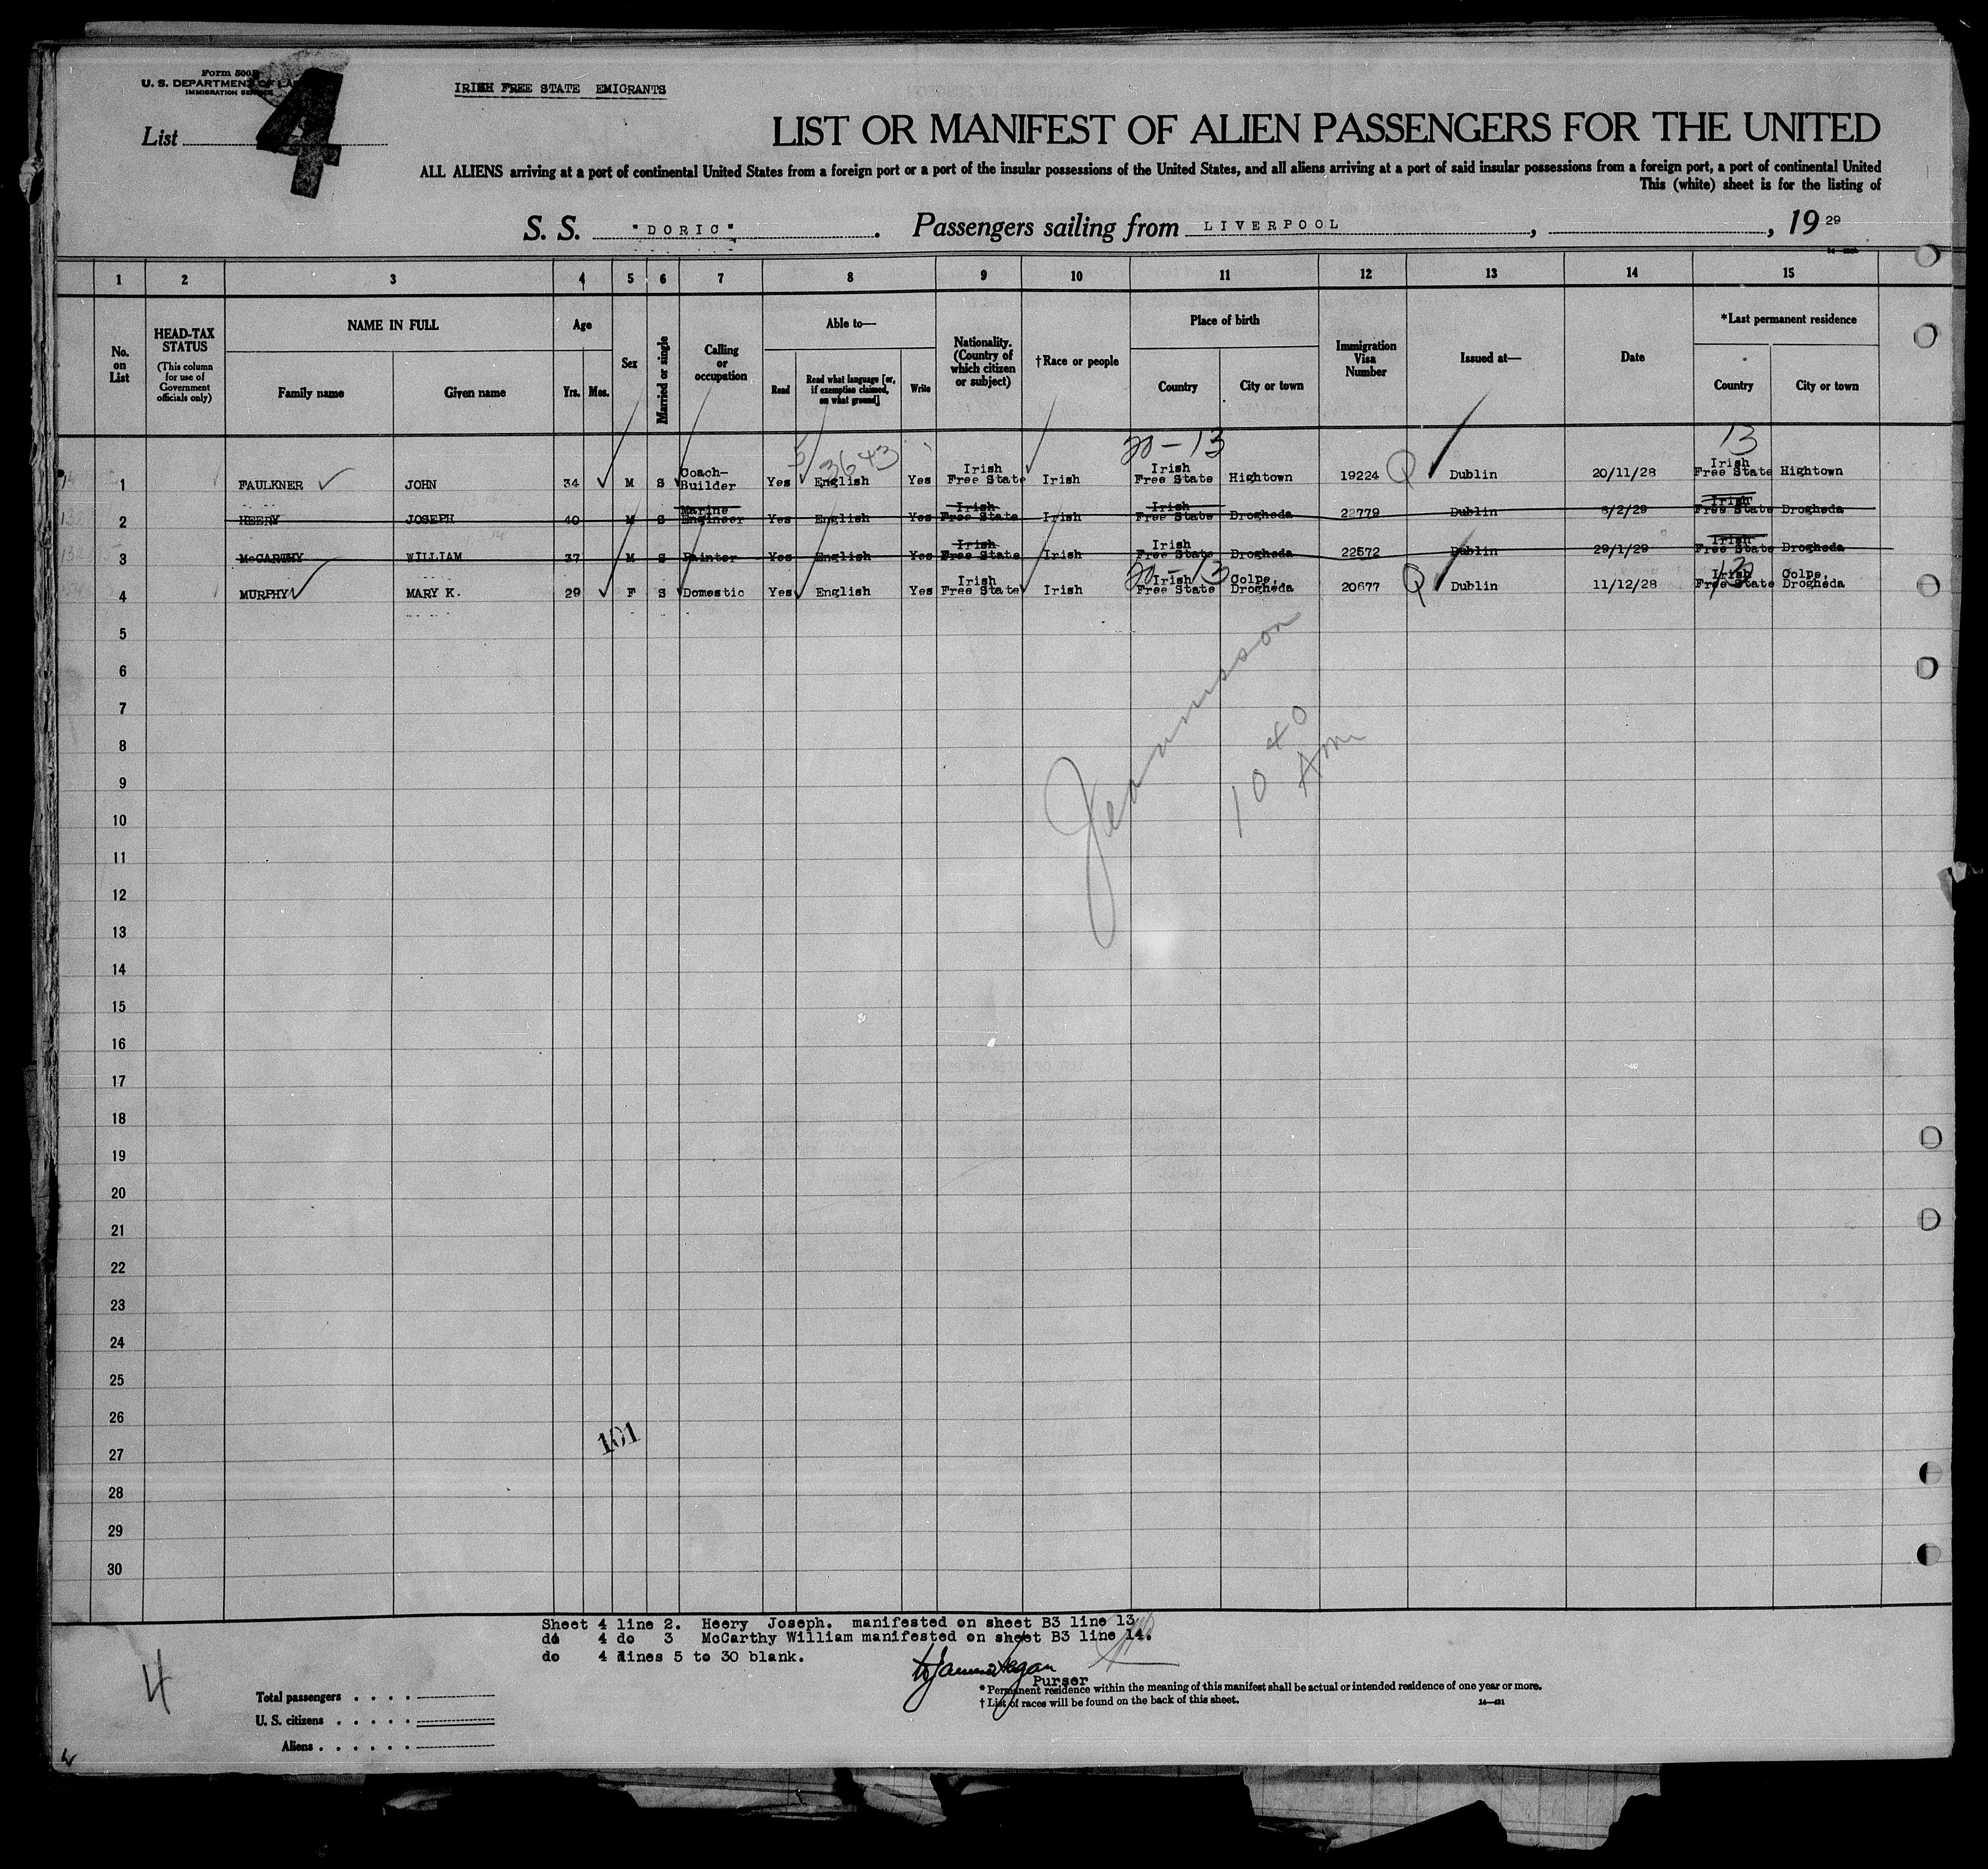 Form 500
U. S. DEPARTMENT OF LA
IMMIGRATION SERVICE
4
IRISH FREE STATE EMIGRANTS
List
LIST OR MANIFEST OF ALIEN PASSENGERS FOR THE UNITED
ALL ALIENS arriving at a port of continental United States from a foreign port or a port of the insular possessions of the United States, and all aliens arriving at a port of said insular possessions from a foreign port, a port of continental United
This (white) sheet is for the listing of
S. S. "DORIC". Passengers sailing from LIVERPOOL, , 1929
1 2 3 4 5 6 7 8 9 10 11 12 13 14 15
No. on List
HEAD-TAX STATUS
(This column for use of Government officials only)
NAME IN FULL
Family name Given name
Age
Yrs. Mos.
Sex
Married or single
Calling or occupation
Able to—
Read Read what language [or, if exemption claimed, on what ground] Write
Nationality. (Country of which citizen or subject)
†Race or people
Place of birth
Country City or town
Immigration Visa Number
Issued at—
Date
*Last permanent residence
Country City or town
3643 20-13 13
1 FAULKNER JOHN 34 M S Coach-Builder Yes English Yes Irish Free State Irish Irish Free State Hightown 19224 Q Dublin 20/11/28 Irish Free State Hightown
2 HEERY JOSEPH 40 M S Marine Engineer Yes English Yes Irish Free State Irish Irish Free State Drogheda 22779 Dublin 8/2/29 Irish Free State Drogheda
3 McCARTHY WILLIAM 37 M S Painter Yes English Yes Irish Free State Irish Irish Free State Drogheda 22572 Dublin 29/1/29 Irish Free State Drogheda
20-13 13
4 MURPHY MARY K. 29 F S Domestic Yes English Yes Irish Free State Irish Irish Free State Colpe, Drogheda 20677 Q Dublin 11/12/28 Irish Free State Colpe, Drogheda
5
6
7
8
9
10
11
12
13
14
15
16
17
18
19
20
21
22
23
24
25
26
27
28
29
30
10 40 Am
101
Sheet 4 line 2. Heery Joseph. manifested on sheet B3 line 13
do 4 do 3 McCarthy William manifested on sheet B3 line 14.
do 4 lines 5 to 30 blank.
Purser
4
Total passengers . . . .
U. S. citizens . . . . .
Aliens . . . . . .
* Permanent residence within the meaning of this manifest shall be actual or intended residence of one year or more.
† List of races will be found on the back of this sheet.
14—421